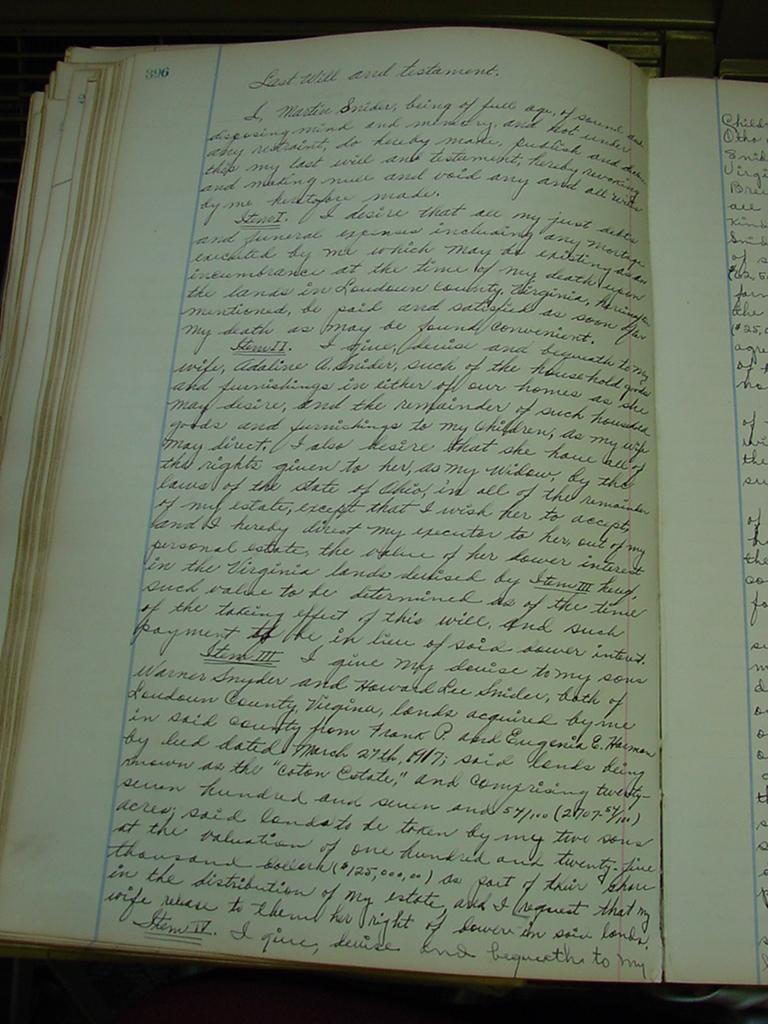 396
Last Will and testament.
I, Martin Snider, being of full age, of sound and
disposing mind and memory, and not under
any restraint, do hereby make, publish and
this my last will and testament, hereby revoking
and making null and void any and all wills
by me heretofore made.
Item I. I desire that all my just debts
and funeral expenses including any mortgage
executed by me which may be existing as an
incumbrance at the time of my death upon
the lands in Loudoun County, Virginia, hereinafter
mentioned, be paid and satisfied as soon after
my death as may be found convenient.
Item II. I give, devise and bequeath to my
wife, Adaline A. Snider, such of the household goods
and furnishings in either of our homes as she
may desire, and the remainder of such household
goods and furnishings to my children, as my wife
may direct. I also desire that she have all of
the rights given to her, as my widow, by the
laws of the state of Ohio, in all of the remainder
of my estate, except that I wish her to accept,
and I hereby direct my executor to her, out of my
personal estate, the value of her dower interest
in the Virginia lands devised by Item III hereof,
such value to be determined as of the time
of the taking effect of this will, and such
payment to be in lieu of said dower interest.
Item III I give my devise to my sons
Warner Snyder and Howard Lee Snider, both of
Loudoun County, Virginia, lands acquired by me
in said county from Frank P. and Eugenia E. Harman
by deed dated March 27th, 1917; said lands being
known as the "Coton Estate," and comprising twenty-
seven hundred and seven and 54/100 (2707-54/100)
acres; said lands to be taken by my two sons
at the valuation of one hundred and twenty-five
thousand dollars ($125,000,00) as part of their share
in the distribution of my estate, and I request that my
wife release to them her right of dower in said lands.
Item IV. I give, devise and bequeath to my
Otho
all
of
the
agre
of
no
of
the